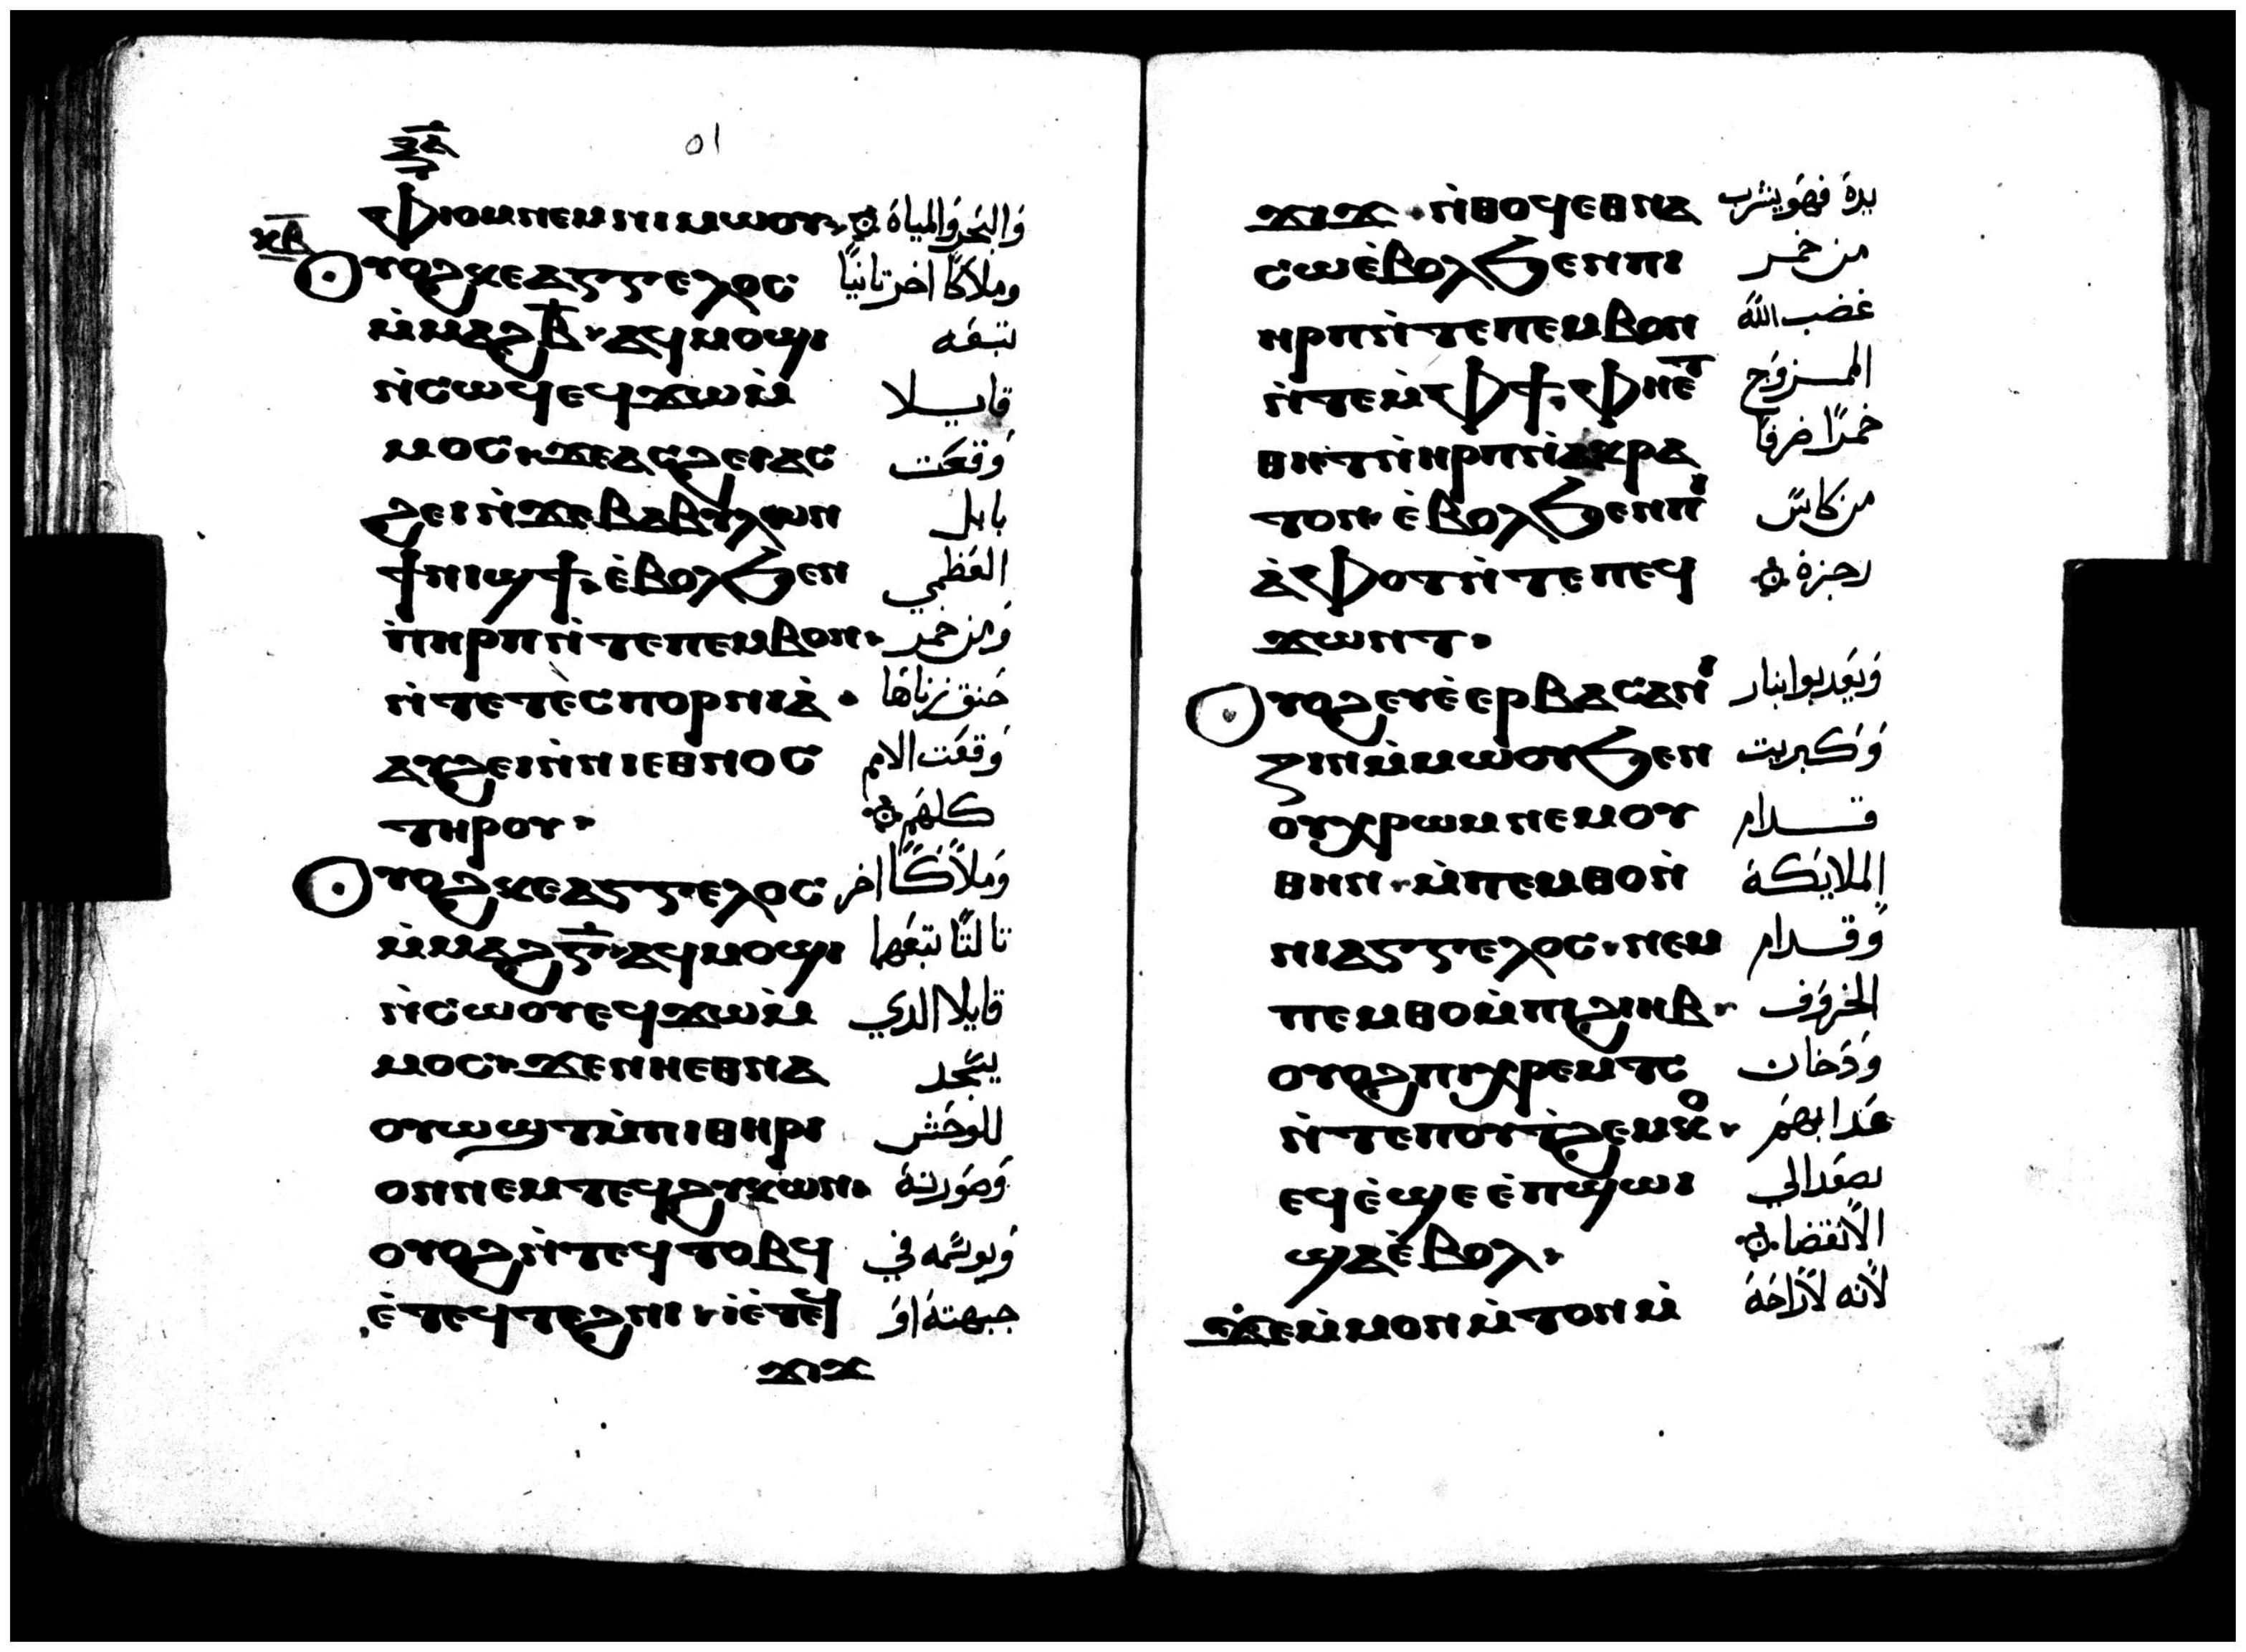 ⲝ̅ⲁ̅
٥١
ⲫⲓⲟⲙ ⲛⲉⲙ ⲛⲓⲙⲱⲟⲩ· وَالبَحَر وَالمياة
ⲕ̅ⲃ̅
ⲟⲩⲟϩ ⲕⲉⲁⲅⲅⲉⲗⲟⲥ وملاكًا اخر تانيًا
ⲙ̀ⲙⲁϩⲃ̅· ⲁϥⲙⲟϣⲓ تبعَه
ⲛ̀ⲥⲱϥ ⲉϥϫⲱⲙ̀ قايلا
ⲙⲟⲥ· ϫⲉ ⲁⲥϩⲉⲓ ⲁⲥ وَقعَت
ϩⲉⲓ ⲛ̀ϫⲉ ⲃⲁⲃⲩⲗⲱⲛ بابل
ϯⲛⲓϣϯ· ⲉ̀ⲃⲟⲗϧⲉⲛ العَظمي
ⲡ̀ⲏⲣⲡ ⲛ̀ⲧⲉ ⲡⲉⲙⲃⲟⲛ· وَمن خمر
ⲛ̀ⲧⲉ ⲧⲉⲥⲡⲟⲣⲛⲓⲁ̀· حَنق زناهَا
ⲁⲩϩⲉⲓ ⲛ̀ⲛⲓⲉⲑⲛⲟⲥ وَقعَت الامم
ⲧⲏⲣⲟⲩ· كلهَم
ⲟⲩⲟϩ ⲕⲉⲁⲅⲅⲉⲗⲟⲥ وَملاكًا اخر
ⲙ̀ⲙⲁϩⲅ̅· ⲁϥⲙⲟϣⲓ تالتًا تبعَهما
ⲛ̀ⲥⲱⲟⲩ ⲉϥϫⲱⲙ̀ قايلا الدي
ⲙⲟⲥ· ϫⲉ ⲛⲏⲉⲑⲛⲁ يسَجد
ⲟⲩⲱϣⲧ ⲙ̀ⲡⲓⲑⲏⲣⲓ للوحَش
ⲟⲛ ⲛⲉⲙ ⲧⲉϥϩⲩⲕⲱⲛ· وَصَورتهَ
ⲟⲩⲟϩ ⲛ̀ⲧⲉϥⲧⲟⲃϥ وَيوسَمه في
ⲉ̀ⲧⲉϥⲧⲉϩⲛⲓ· ⲓⲉ̀ ⲧⲉϥ جبهتهَ اوَ
ϫⲓϫ
ϫⲓϫ· ⲛ̀ⲑⲟϥ ⲉⲑⲛⲁ يدهَ فهَو يشرب
ⲥⲱ ⲉ̀ⲃⲟⲗϧⲉⲛ ⲡⲓ من خمر
ⲏⲣⲡ ⲛ̀ⲧⲉ ⲡⲉⲙⲃⲟⲛ غضب اللهَ
ⲛ̀ⲧⲉⲙ̀ⲫϯ· ⲫⲏⲉⲧ الممزوَج
ⲑⲏⲧ ⲛ̀ⲏⲣⲡ ⲛ̀ⲁⲕⲣⲁ خمرًا صَرفًا
ⲧⲟⲛ· ⲉ̀ⲃⲟⲗϧⲉⲛ ⲡⲓ من كاس
ⲁ̀ⲫⲟⲧ ⲛ̀ⲧⲉ ⲡⲉϥ رجزهَ
ϫⲱⲛⲧ·
ⲟⲩⲟϩ ⲉⲩⲉ̀ⲉⲣⲃⲁⲥⲁⲛⲓ وَيعَدبوا بنار
ⲍⲓⲛ ⲙ̀ⲙⲱⲟⲩ ϧⲉⲛ وَكبريت
ⲟⲩⲭⲣⲱⲙ ⲛⲉⲙ ⲟⲩ قدام
ⲑⲏⲛ· ⲙ̀ⲡⲉⲙⲑⲟ ⲛ̀ الملايكة
ⲛⲓⲁⲅⲅⲉⲗⲟⲥ· ⲛⲉⲙ وَقدام
ⲡⲉⲙⲑⲟ ⲙ̀ⲡⲓϩⲓⲏⲃ· الخروَف
ⲟⲩⲟϩ ⲡⲓⲭⲣⲉⲙⲧⲥ وَدَخان
ⲛ̀ⲧⲉ ⲡⲟⲩⲧ̀ϩⲉⲙⲕⲟ· عَدابهَم
ⲉϥⲉ̀ϣⲉ ⲉ̀ⲡϣⲱⲓ يصعَد الي
ϣⲁ ⲉ̀ⲃⲟⲗ· الانقضا
ϫⲉ ⲙ̀ⲙⲟⲛ ⲙ̀ⲧⲟⲛ ⲙ̀ لانه لارَاحَهَ